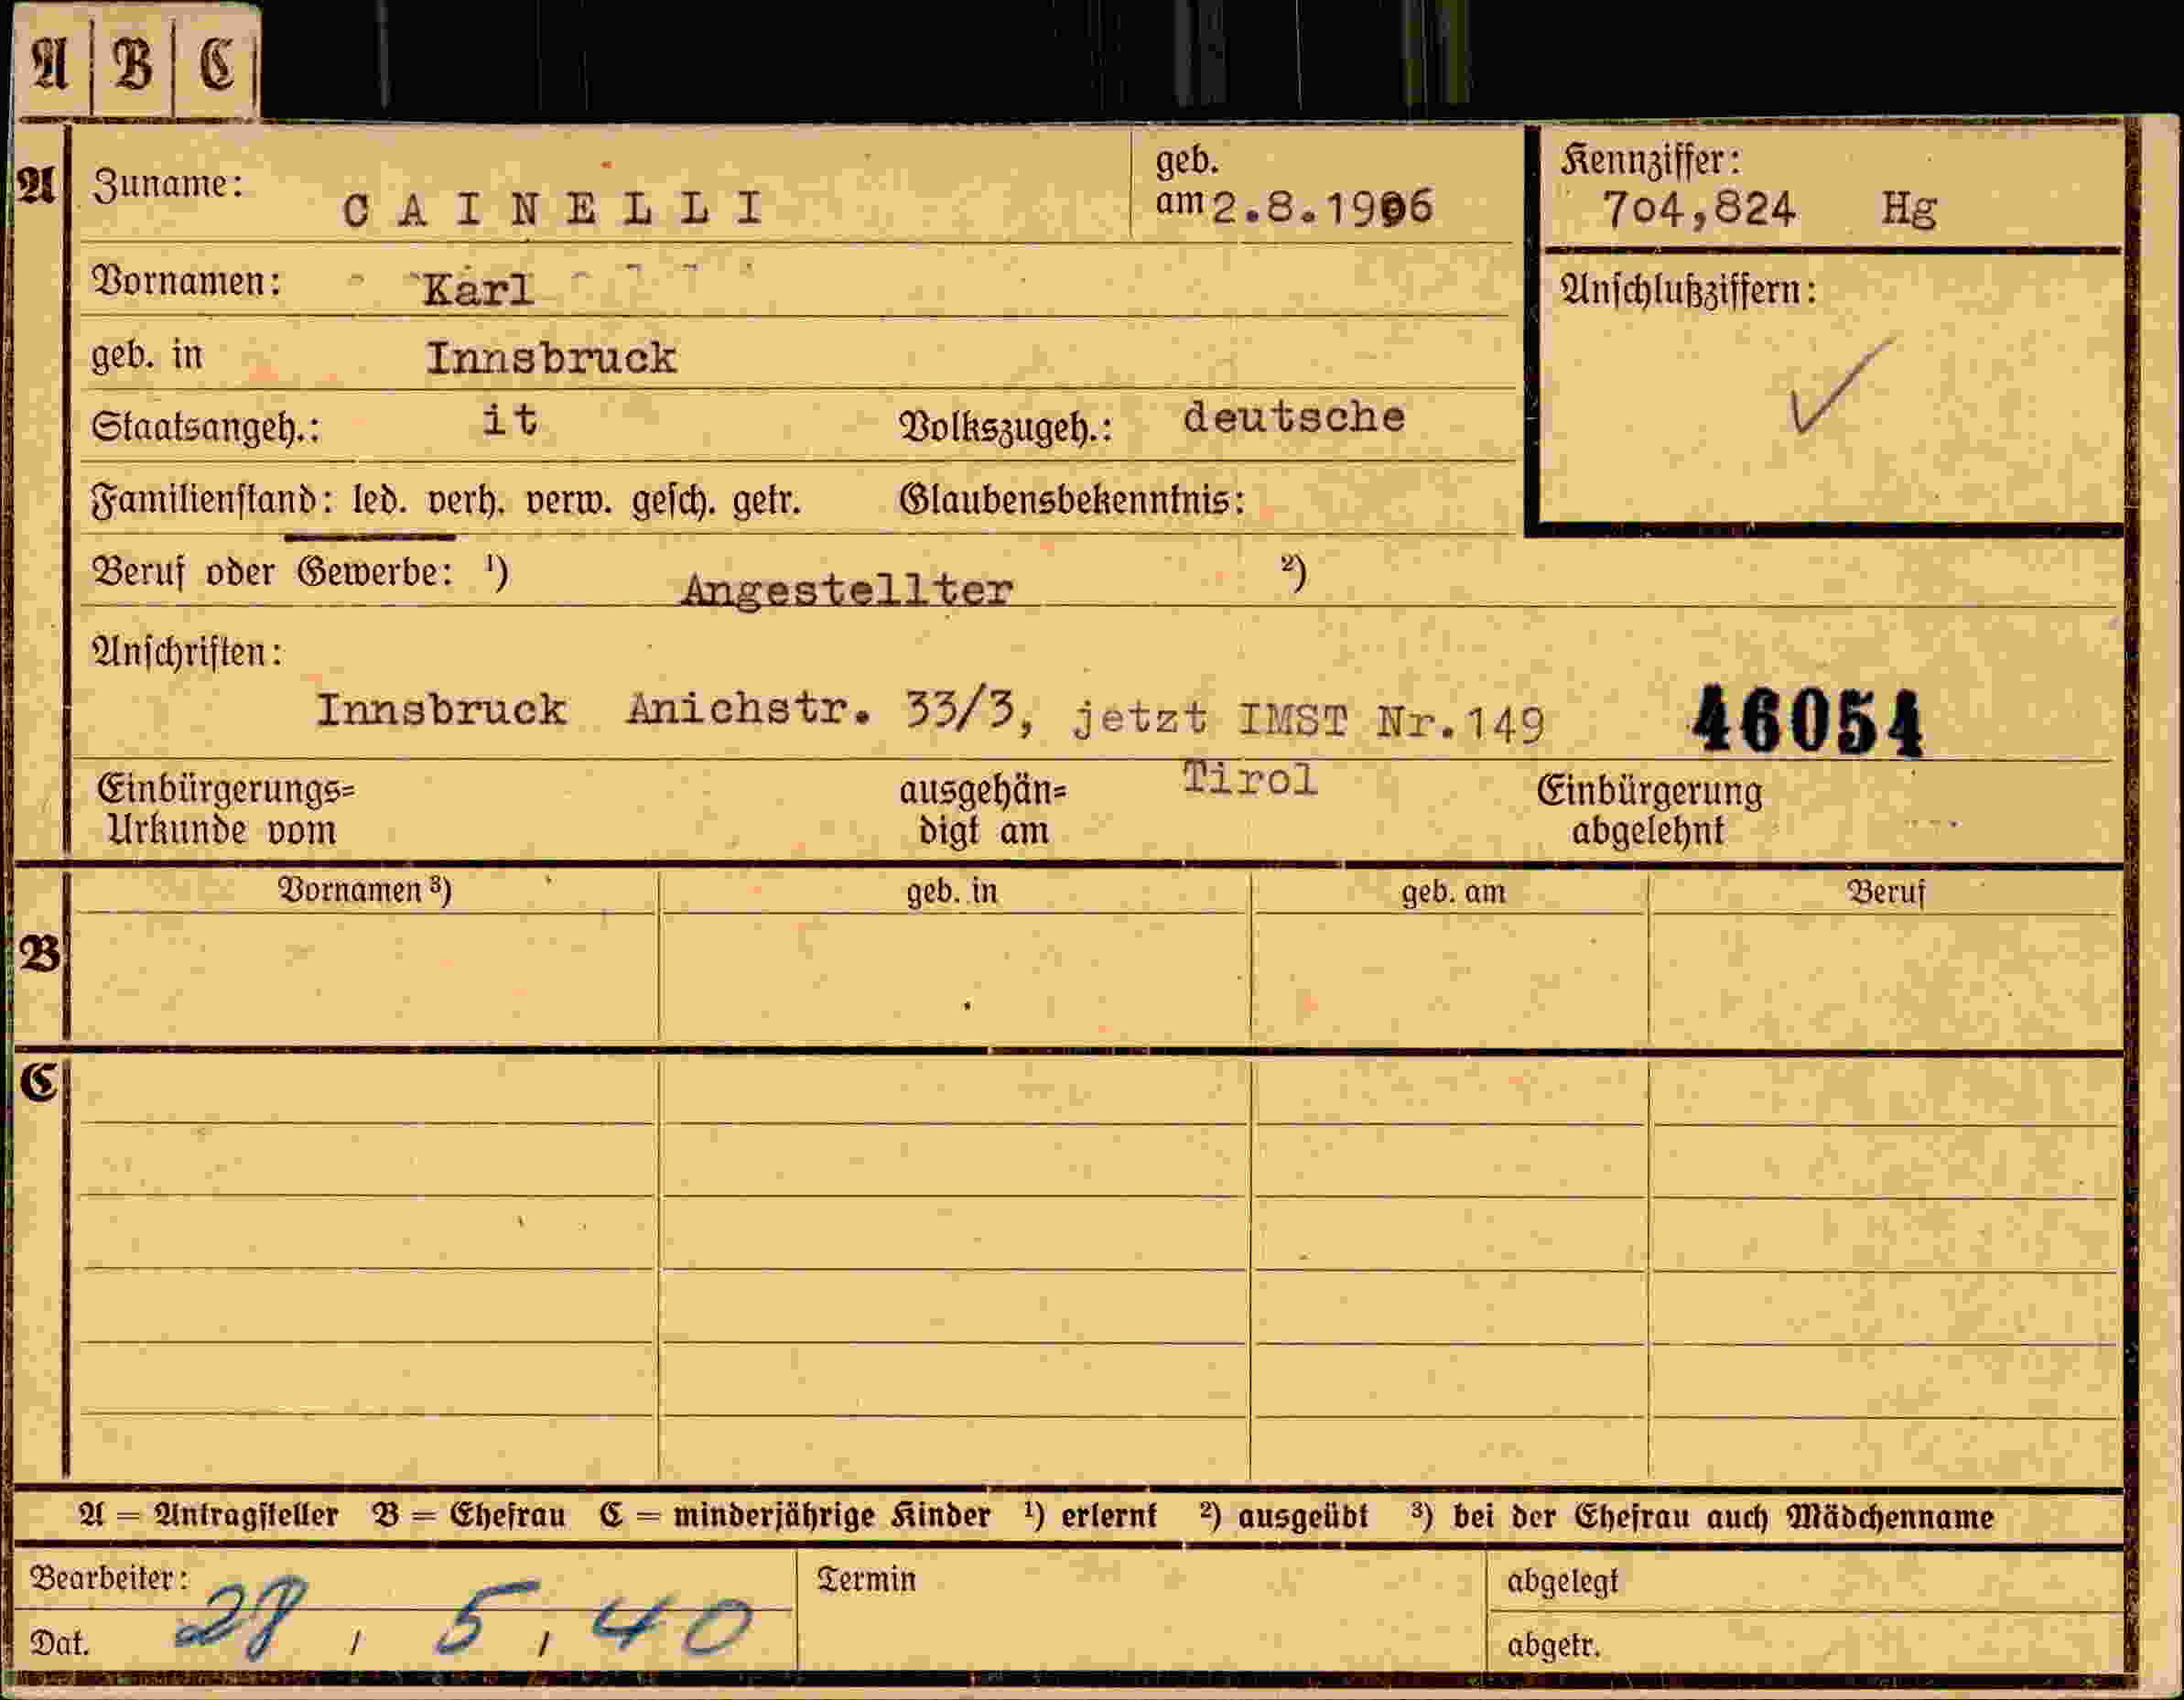 A B C
A Zuname: CAINELLI geb. am 2.8.1906 Kennziffer:
704,824 Hg
Vornamen: Karl Anschlußziffern:
geb. in Innsbruck
Staatsangeh.: it Volkszugeh.: deutsche
Familienstand: led. verh. verw. gesch. getr. Glaubensbekenntnis:
Beruf oder Gewerbe: ¹) Angestellter ²)
Anschriften:
Innsbruck Anichstr. 33/3, jetzt IMST Nr.149 46054
Tirol
Einbürgerungs= ausgehän= Einbürgerung
Urkunde vom digt am abgelehnt
Vornamen ³) geb. in geb. am Beruf
B
C
A = Antragsteller B = Ehefrau C = minderjährige Kinder ¹) erlernt ²) ausgeübt ³) bei der Ehefrau auch Mädchenname
Bearbeiter: Termin abgelegt
Dat. 28, 5, 40 abgetr.